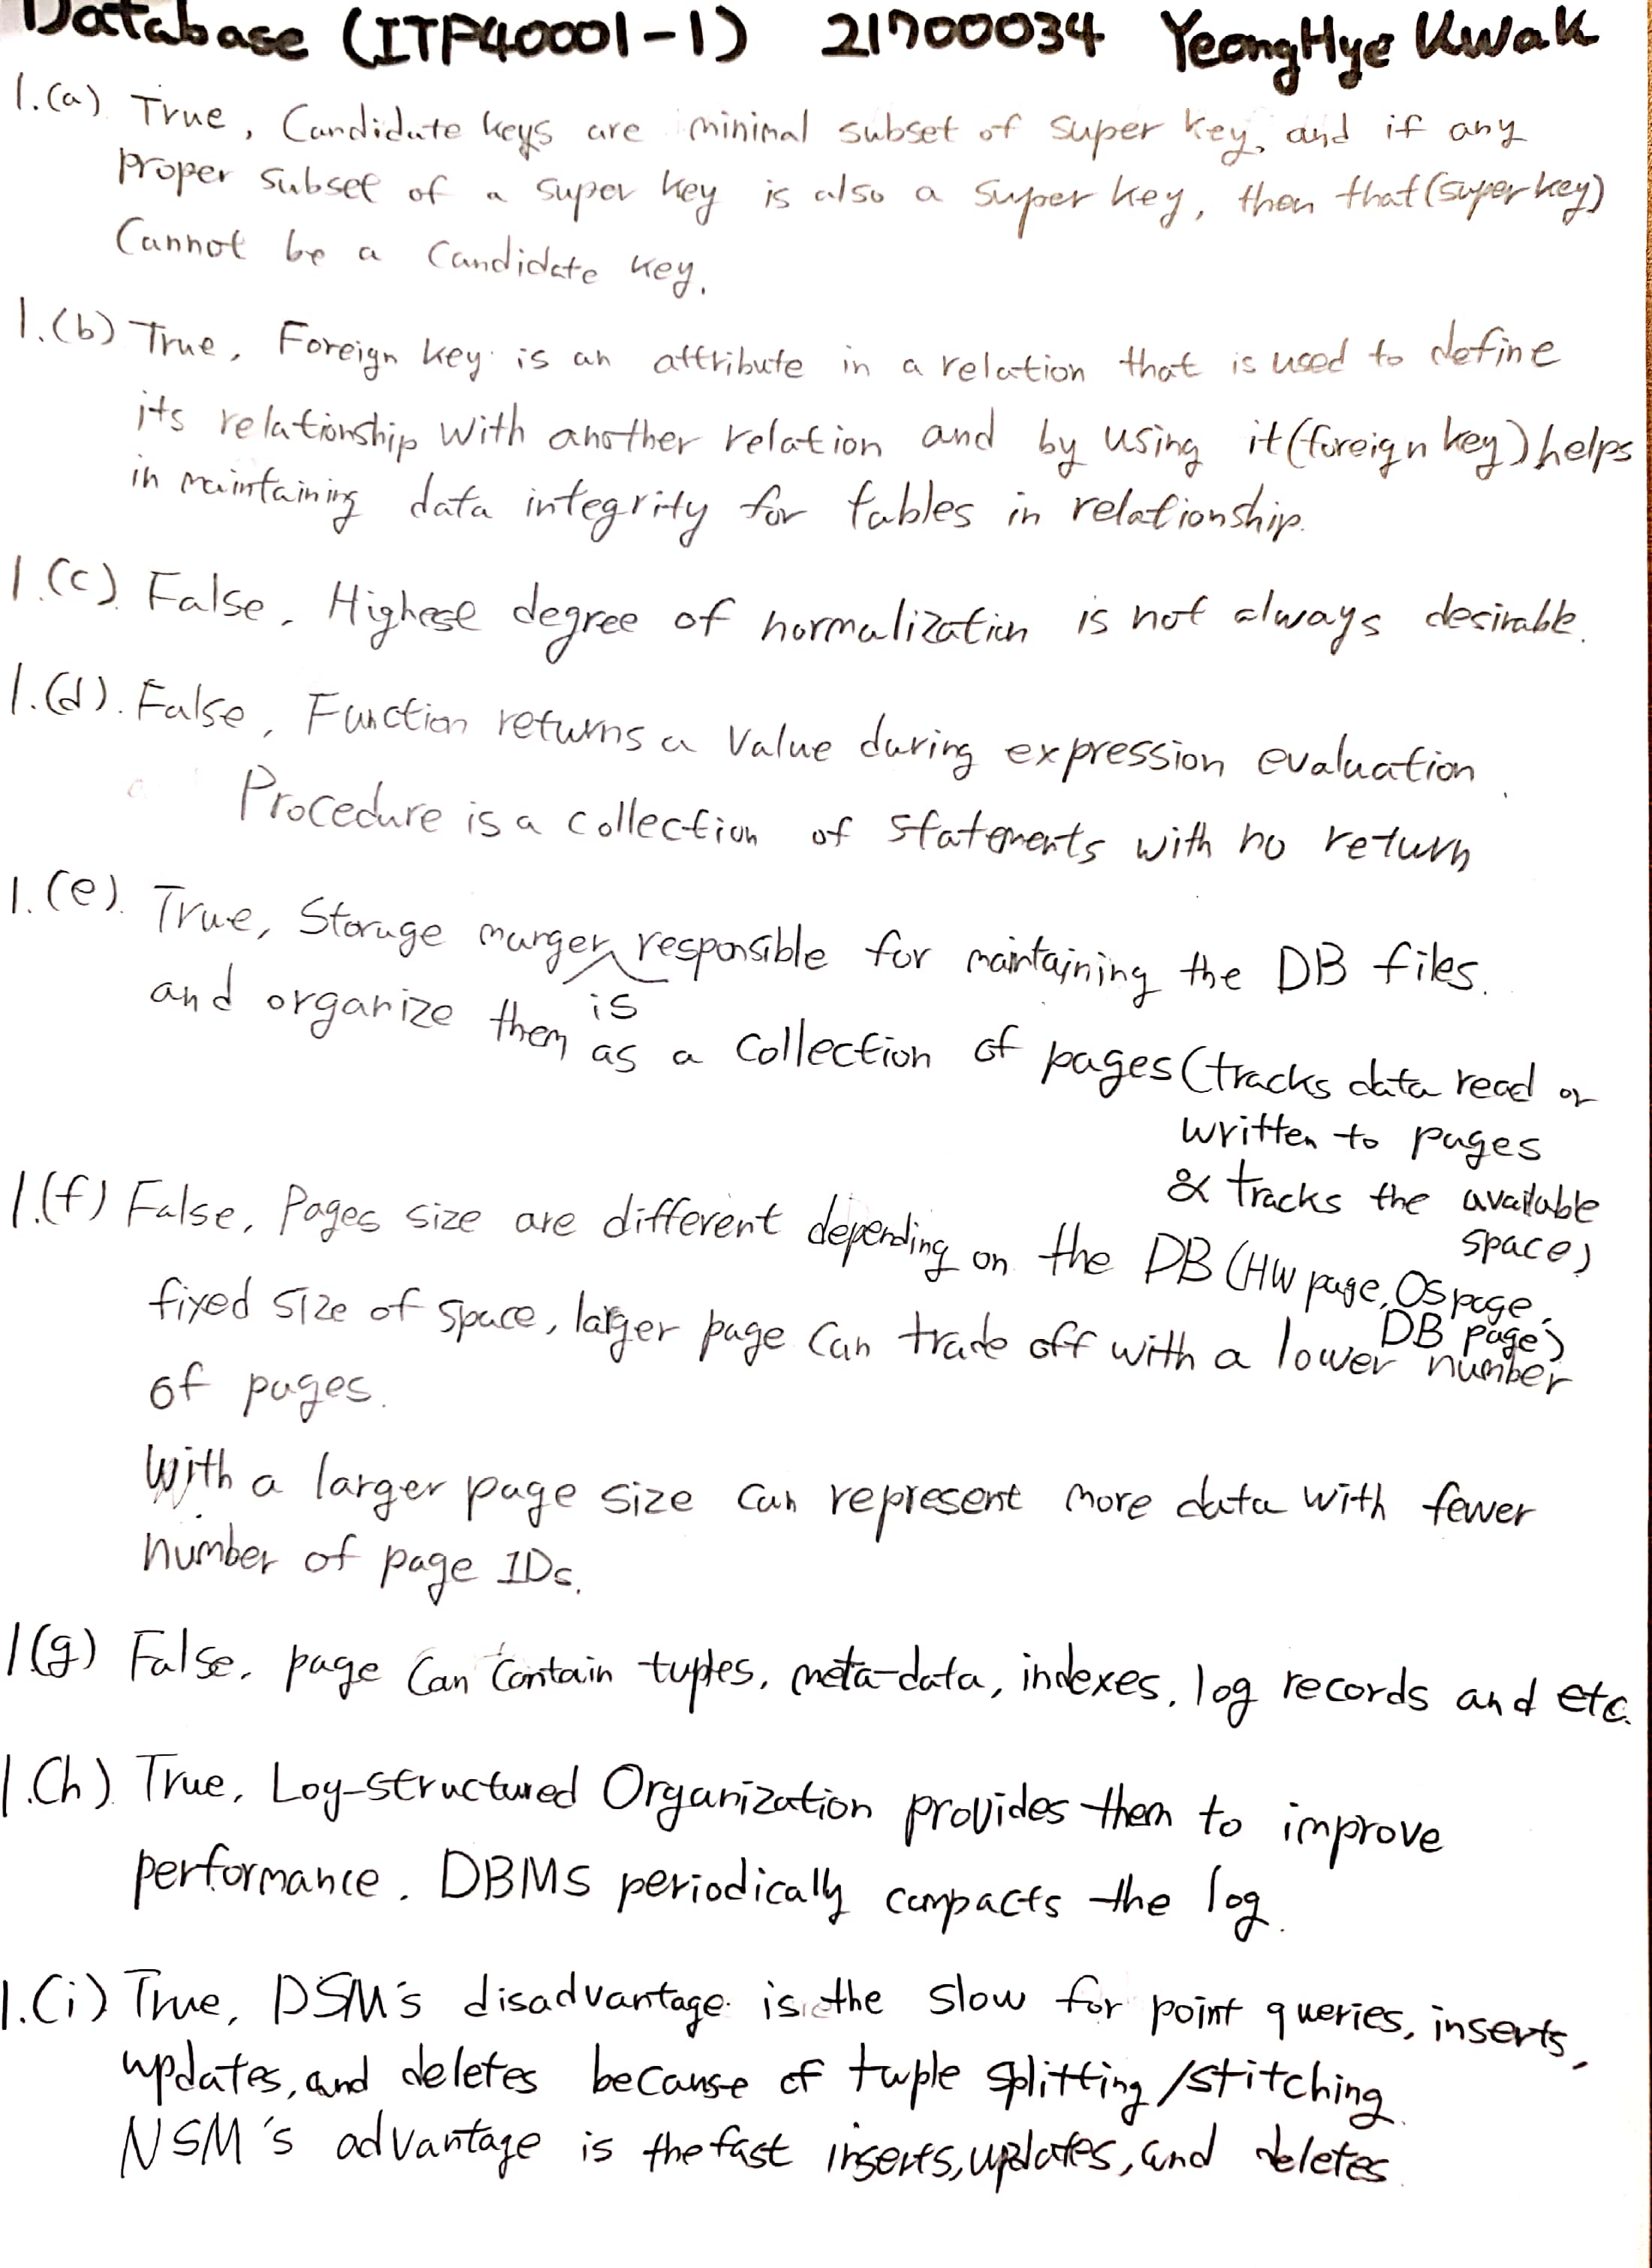 Database (ITP40001-1) 21700034 YeongHye Kwak
1.(a) True, Candidate keys are minimal subset of super key, and if any
proper subset of a super key is also a super key, then that (super key)
Cannot be a Candidate key.
1.(b) True, Foreign key is an attribute in a relation that is used to define
its relationship with another relation and by using it (foreign key) helps
in maintaining data integrity for tables in relationship.
1.(c) False, Highest degree of normalization is not always desirable.
1.(d). False, Function returns a Value during expression evaluation.
Procedure is a collection of statements with no return
1.(e). True, Storage manger is responsible for maintaining the DB files.
and organize them as a Collection of pages (tracks data read or
written to pages
& tracks the available
space)
1.(f) False, Pages size are different depending on the DB (HW page, OS page,
DB page)
fixed size of space, larger page Can trade off with a lower number
of pages.
With a larger page size can represent more data with fewer
number of page IDs.
1(g) False, page Can Contain tuples, meta-data, indexes, log records and etc.
1.(h) True, Log-structured Organization provides them to improve
performance. DBMS periodically compacts the log.
1.(i) True, DSM's disadvantage is the slow for point queries, inserts,
updates, and deletes because of tuple splitting/stitching.
NSM's advantage is the fast inserts, updates, and deletes.